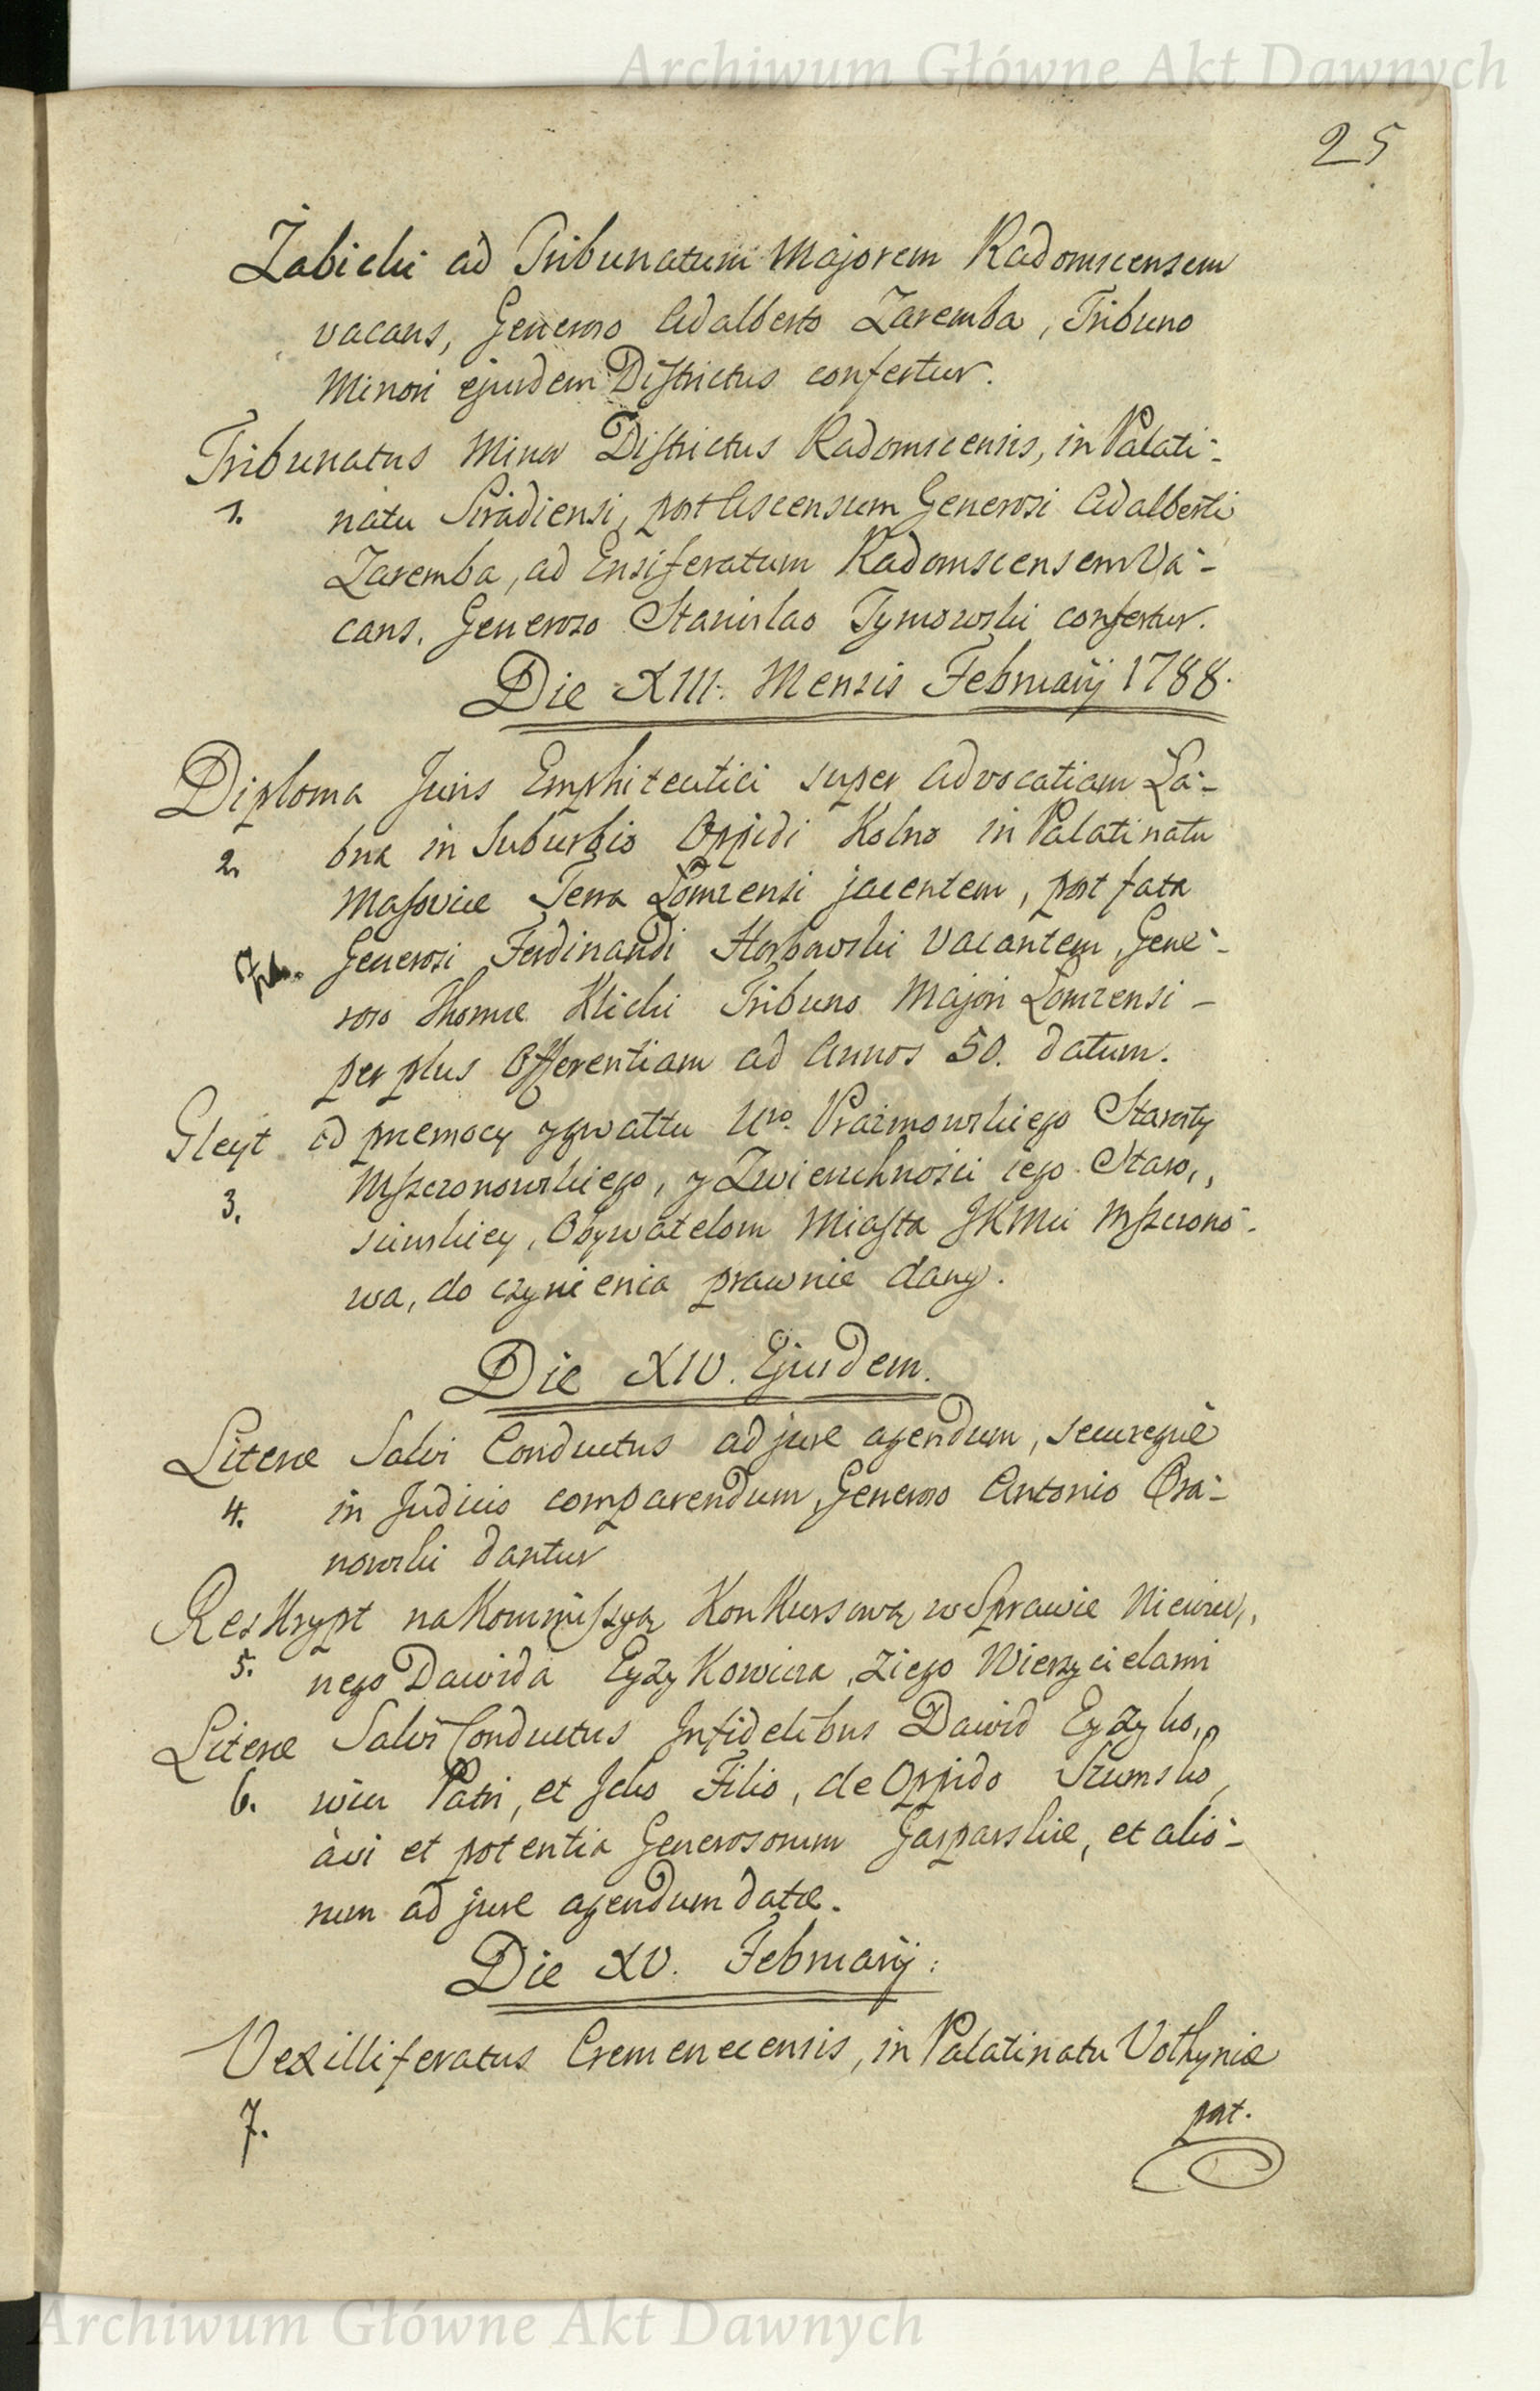 Archiwum Główne Akt Dawnych
25
Żabicki ad Tribunatum Majorem Radomscensem
vacans, Generoso Adalberto Zaremba, Tribuno
Minori ejusdem Districtus confertur.
Tribunatus Minor Districtus Radomscensis, in Palati-
1. natu Siradiensi, post Ascensum Generosi Adalberti
Zaremba, ad Ensiferatum Radomscensem Va-
cans, Generoso Stanislao Tymowski confertur.
Die XIII. Mensis Februarij 1788.
Diploma Juris Emphiteutici super advocatiam La-
2. bna in Suburbio Oppidi Kolno in Palatinatu
Masoviæ Terra Łomzensi jacentem, post fata
Generosi Ferdinandi Skarbowski vacantem, Gene-
roso Thomæ Klicki Tribuno Majori Łomzensi -
per plus Offerentiam ad Annos 50. datum.
Gleyt od przemocy y gwałtu Uro. Prażmowskiego Starosty
3. Mszczonowskiego, y Zwierzchności iego Staro,,
scinskiey, Obywatelom Miasta JKMci Mszczono-
wa, do czynienia prawnie dany.
Die XIV. Ejusdem.
Literæ Salvi Conductus ad jure agendum, secureque
4. in Judicio comparendum, Generoso Antonio Ora-
nowski dantur
Reskrypt na Kommissyą Konkursową w Sprawie Niewier,,
5. nego Dawida Eyzykowicza, z iego Wierzycielami
Literæ Salvi Conductus Infidelibus Dawid Eyzyko,,
6. wicz Patri, et Icko Filio, de Oppido Szumsko,
à vi et potentia Generosorum Gasparskie, et alio-
rum ad jure agendum datæ.
Die XV. Februarij:
Vexilliferatus Cremenecensis, in Palatinatu Volhyniæ
7.
post.
Archiwum Główne Akt Dawnych